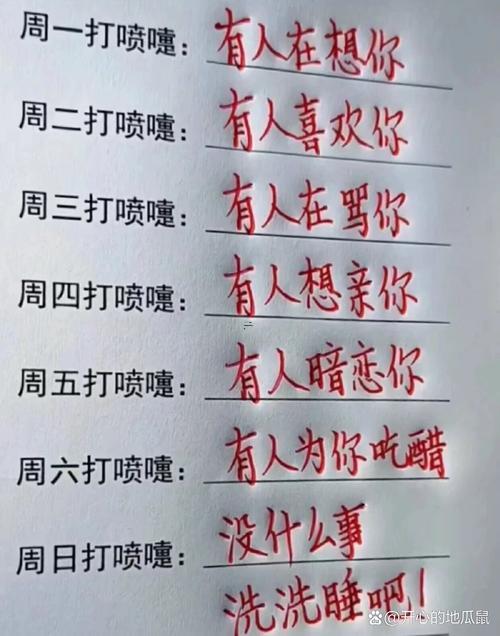 周一打喷嚏：有人在想你
周二打喷嚏：有人喜欢你
周三打喷嚏：有人在骂你
周四打喷嚏：有人想亲你
周五打喷嚏：有人暗恋你
周六打喷嚏：有人为你吃醋
周日打喷嚏：没什么事
洗洗睡吧！
@开心的地瓜鼠